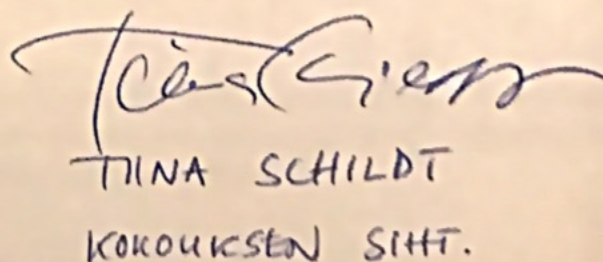 TIINA SCHILDT
KOKOUKSEN SIHT.